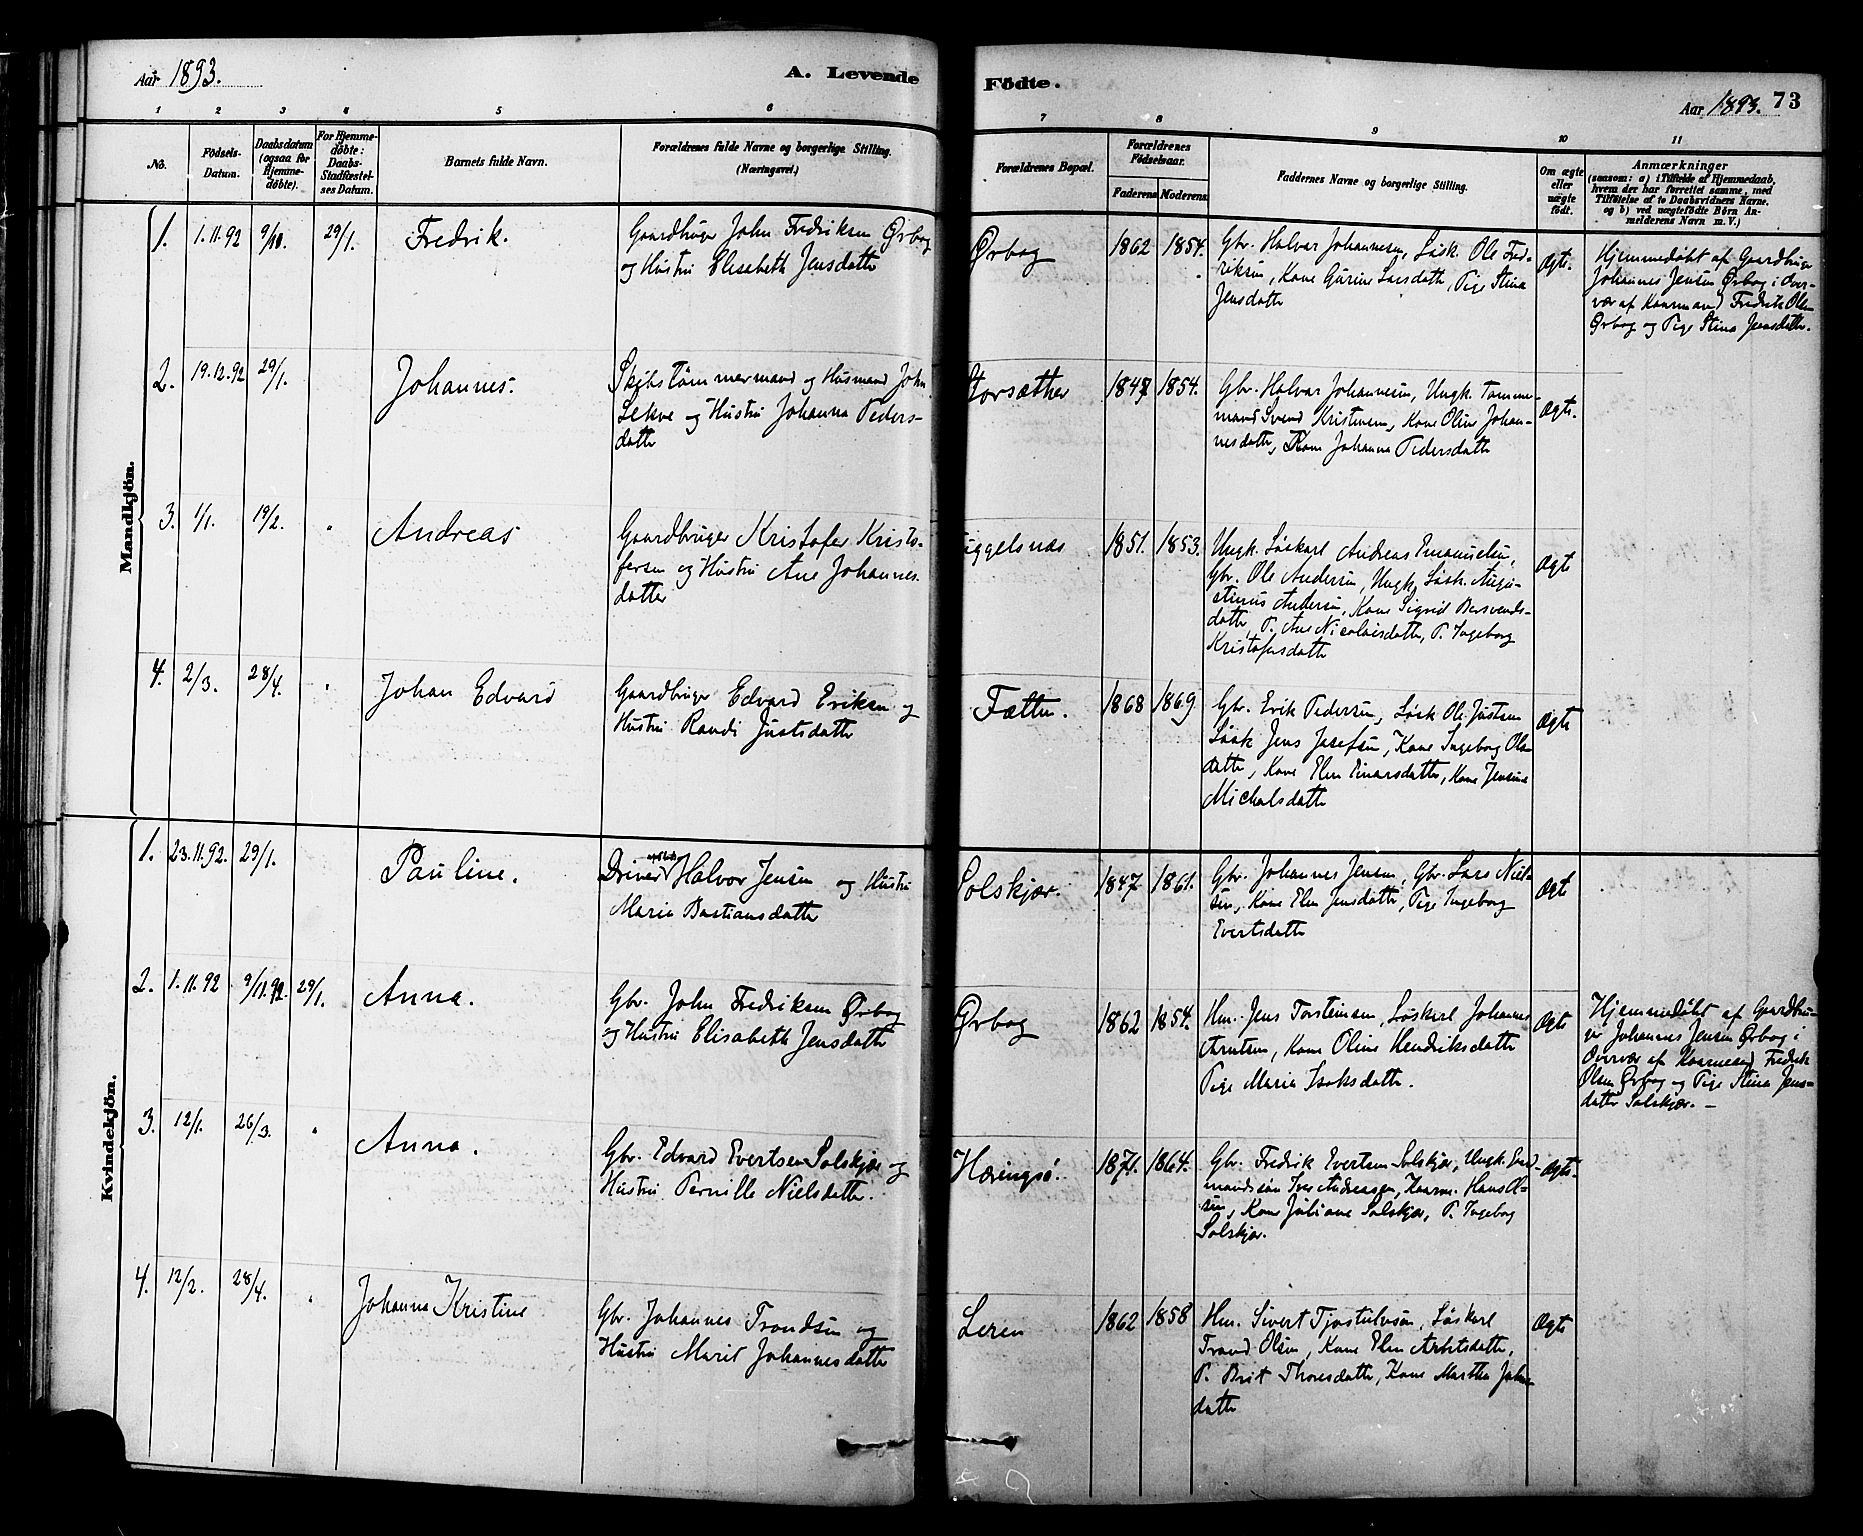 Aar 1893.
A. Levende
Födte.
Aar 1893. 73
1 2 3 4 5 6 7 8 9 10 11
No.
Födsels-
Datum.
Daabsdatum
(ogsaa for
Hjemme-
döbte).
For Hjemme-
döbte:
Daabs-
Stadfæstel-
ses Datum.
Barnets fulde Navn.
Forældrenes fulde Navne og borgerlige Stilling.
(Næringsvei.)
Forældrenes Bopæl.
Forældrenes
Födselsaar.
Faderens Moderens
Faddernes Navne og borgerlige Stilling.
Om ægte
eller
uægte
födt.
Anmærkninger
(saasom: a) i Tilfælde af Hjemmedaab,
hvem der har forrettet samme, med
Tilföielse af to Daabsvidners Navne.
og b) ved uægtefödte Börn An-
melderens Navn m. V.)
Mandkjön.
1. 1.11.92 29/1. Fredrik.
Gaardbruger John Fredriksen Ørbog
og Hustru Elisabeth Jensdatter
Ørbog 1862 1854.
Gbr. Halvar Johannesen, Løsk. Ole Fred-
riksen, Kone Gurine Larsdatter, Pige Stina
Jensdatter
Ægte.
Hjemmedøbt af Gaardbruger
Johannes Jensen Ørbog i Over-
vær af Kaarmand Fredrik Olsen
Ørbog og Pige Stina Jensdatter.
2. 19.12.92 29/1. Johannes.
Skibstømmermand og Husmand John
Lekve og Hustru Johanna Peders-
datter
Storsæther 1847 1854.
Gbr. Halvar Johannesen, Ungk. Tømmer-
mand Svend Kristensen, Kone Oline Johan-
nesdatter, Kone Johanna Pedersdatter
Ægte.
3. 1/1. 19/2. " Andreas
Gaardbruger Kristofer Kristo-
fersen og Hustru Ane Johannes-
datter
uggelsnæs 1851. 1853.
Ungk. Løskarl Andreas Emanuelsen,
Gbr. Ole Andersen, Ungk. Løsk. Augu-
stinus Andersen, Kone Sigrid Bersvends-
datter, P. Ane Nicolaisdatter, P. Ingeborg
Kristofersdatter
Ægte
4. 2/3. 28/4. " Johan Edvard
Gaardbruger Edvard Eriksen og
Hustru Randi Justsdatter
Fætten. 1868 1869
Gbr. Erik Pedersen, Løsk Ole Justsen
Løsk Jens Josefsen, Kone Ingeborg Ols-
datter, Kone Elen Einarsdatter, Kone Jensina
Michalsdatter
Ægte
Kvindekjön.
1. 23.11.92. 29/1. Pauline.
Driver Halvor Jensen og Hustru
Maria Bastiansdatter
Solskjær. 1847 1861.
Gbr. Johannes Jensen, Gbr. Lars Niel-
sen, Kone Elen Jensdatter, Pige Ingeborg
Evertsdatter
Ægte
2. 1.11.92 9/11.92. 29/1. Anna.
Gbr. John Fredriksen Ørbog
og Hustru Elisabeth Jensdatter
Ørbog 1862 1854.
Hm. Jens Torsteinsen, Løskarl Johannes
Arntsen, Kone Oline Hendriksdatter
Pige Maria Isaksdatter.
Ægte
Hjemmedøbt af Gaardbru-
ger Johannes Jensen Ørbog i
Overvær af Kaarmand Fredrik
Olsen Ørbog og Pige Stina Jens-
datter Solskjær. —
3. 12/1. 26/3. " Anna.
Gbr. Edvard Evertsen Solskjær og
Hustru Pernille Nielsdatter.
Hæringsø. 1871. 1864.
Gbr. Fredrik Evertsen Solskjær, Ungk. Gaard-
mandssøn Iver Andreassen, Kaarm. Hans Ol-
sen, Kone Juliane Solskjær, P. Ingeborg
Solskjær.
Ægte.
4. 12/2. 28/4. " Johanna Kristine
Gbr. Johannes Trondsen og
Hustru Marit Johannesdatter
Leren 1862 1858
Hm. Sivert Tjostulvsen, Løskarl
Trond Olsen, Kone Elen Arntsdatter,
P. Brit Thoresdatter, Kone Martha Johns-
datter
Ægte